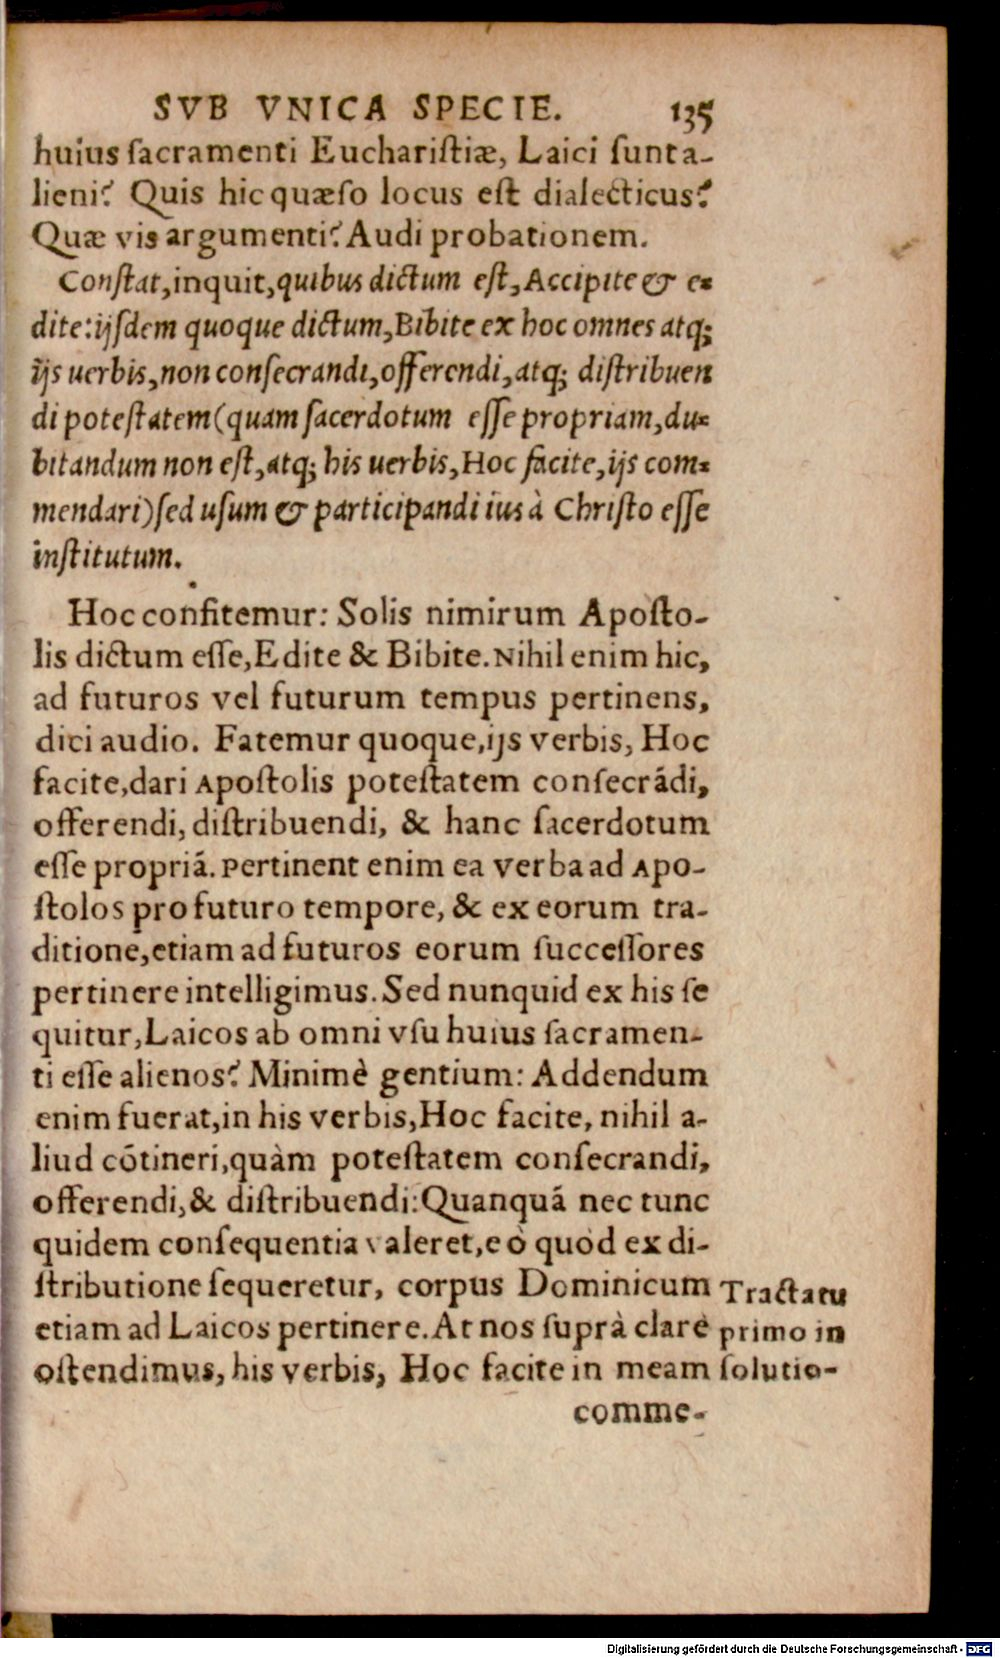 SVB VNICA SPECIE. 135
huius sacramenti Eucharistiæ, Laici sunt a-
lieni? Quis hic quæso locus est dialecticus?
Quæ vis argumenti? Audi probationem.
Constat, inquit, quibus dictum est, Accipite & e-
dite: ijsdem quoque dictum, Bibite ex hoc omnes atq;
ijs uerbis, non consecrandi, offerendi, atq; distribuen
di potestatem (quam sacerdotum esse propriam, du-
bitandum non est, atq; his uerbis, Hoc facite, ijs com-
mendari) sed usum & participandi ius à Christo esse
institutum.
Hoc confitemur: Solis nimirum Aposto-
lis dictum esse, Edite & Bibite. Nihil enim hic,
ad futuros vel futurum tempus pertinens,
dici audio. Fatemur quoque, ijs verbis, Hoc
facite, dari Apostolis potestatem consecrãdi,
offerendi, distribuendi, & hanc sacerdotum
esse propriã. Pertinent enim ea verba ad Apo-
stolos pro futuro tempore, & ex eorum tra-
ditione, etiam ad futuros eorum successores
pertinere intelligimus. Sed nunquid ex his se
quitur, Laicos ab omni vsu huius sacramen-
ti esse alienos? Minimè gentium: Addendum
enim fuerat, in his verbis, Hoc facite, nihil a-
liud cõtineri, quàm potestatem consecrandi,
offerendi, & distribuendi: Quanquã nec tunc
quidem consequentia valeret, eò quòd ex di-
stributione sequeretur, corpus Dominicum
etiam ad Laicos pertinere. At nos suprà clarè
ostendimus, his verbis, Hoc facite in meam
comme-
Tractatu
primo in
solutio-
Digitalisierung gefördert durch die Deutsche Forschungsgemeinschaft - DFG